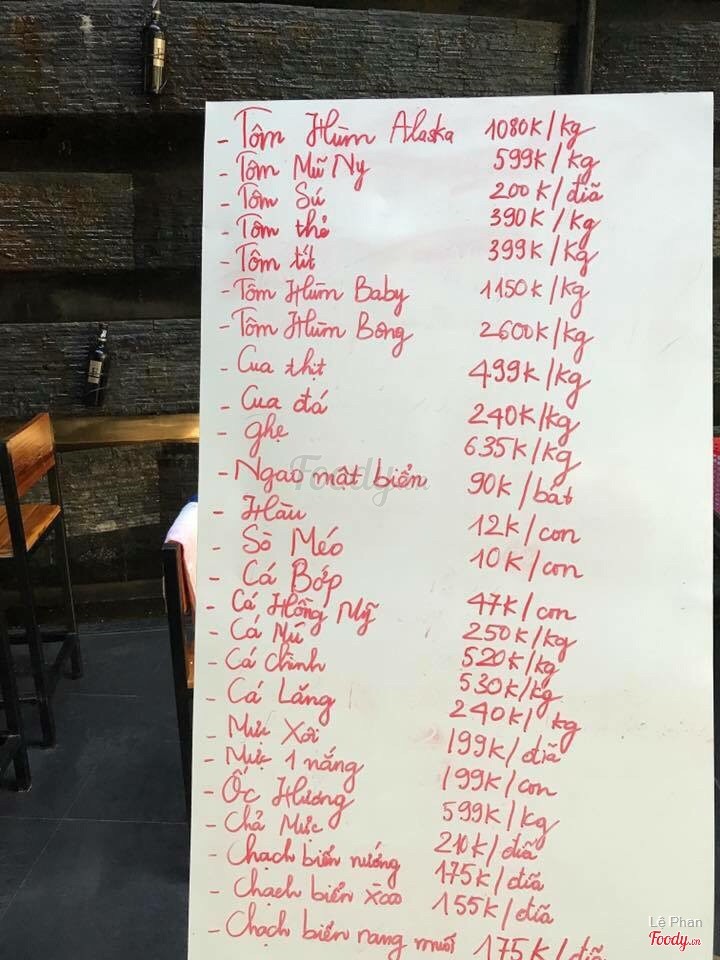 - Tôm Hùm Alaska 1080K/kg
- Tôm Mũ Ny 599K/kg
- Tôm Sú 200K/đĩa
- Tôm thẻ 390K/kg
- Tôm tít 399K/kg
- Tôm Hùm Baby 1150K/kg
- Tôm Hùm Bông 2600K/kg
- Cua thịt 499K/kg
- Cua đá 240K/kg
- ghẹ 635K/kg
- Ngao mật biển 90K/bát
- Hàu 12K/con
- Sò Méo 10K/con
- Cá Bớp 47K/con
- Cá Hồng Mỹ 250K/kg
- Cá Mú 520K/kg
- Cá Chình 530K/kg
- Cá Lăng 240K/kg
- Mực Xôi 199K/đĩa
- Mực 1 nắng 199K/con
- Ốc Hương 599K/kg
- Chả Mực 210K/đĩa
- Chạch biển nướng 175K/đĩa
- Chạch biển xào 155K/đĩa
- Chạch biển rang muối 175K/đĩa
Foody.vn
Lê Phan
Foody.vn